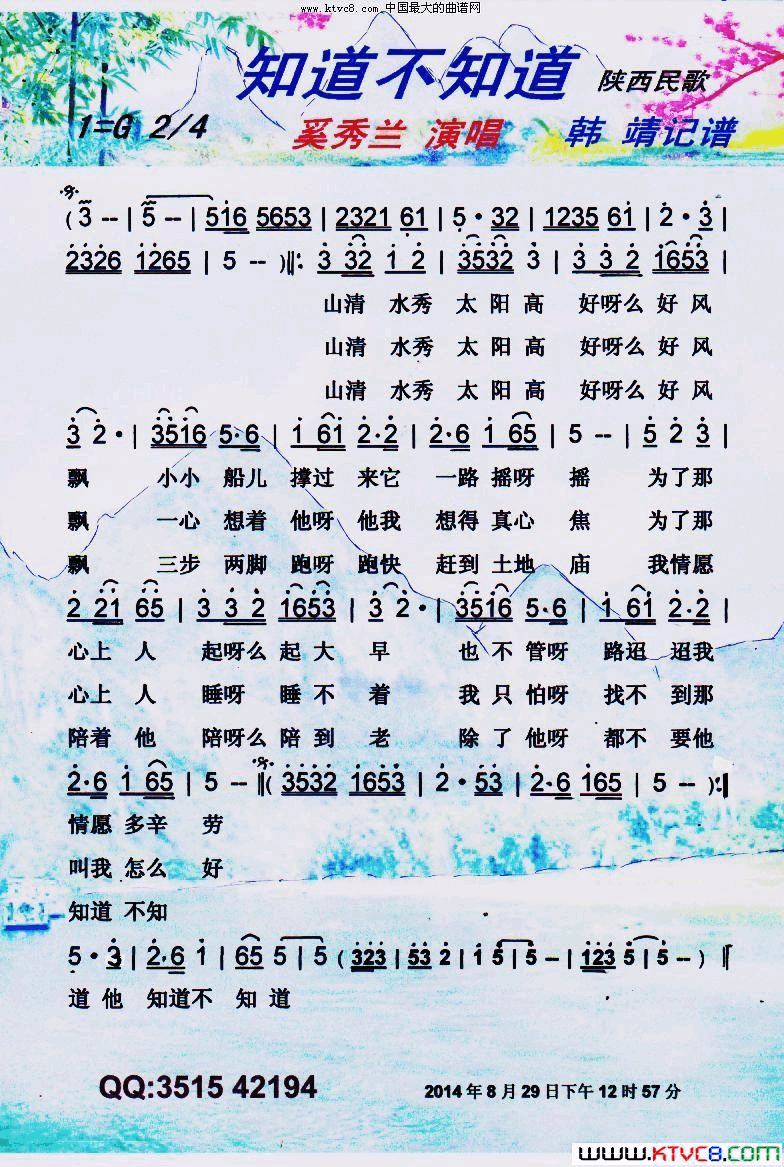 www.ktvc8.com 中国最大的曲谱网
知道不知道 陕西民歌
1=G 2/4 奚秀兰 演唱 韩 靖记谱
( 3 -- | 5 -- | 516 5653 | 2321 61 | 5 · 32 | 1235 61 | 2 · 3 |
2326 1265 | 5 -- ) ‖: 3 32 1 2 | 3532 3 | 3 3 2 1653 |
山清 水秀 太 阳 高 好呀么 好 风
山清 水秀 太 阳 高 好呀么 好 风
山清 水秀 太 阳 高 好呀么 好 风
3 2 · | 3516 5·6 | 1 61 2·2 | 2·6 1 65 | 5 -- | 5 2 3 |
飘 小小 船儿 撑过 来它 一路 摇呀 摇 为了那
飘 一心 想着 他呀 他我 想得 真心 焦 为了那
飘 三步 两脚 跑呀 跑快 赶到 土地 庙 我情愿
2 21 65 | 3 3 2 1653 | 3 2 · | 3516 5·6 | 1 61 2·2 |
心上 人 起呀么 起 大 早 也 不 管呀 路迢 迢我
心上 人 睡呀 睡 不 着 我 只 怕呀 找不 到那
陪着 他 陪呀么 陪 到 老 除 了 他呀 都不 要他
2·6 1 65 | 5 -- ‖ ( 3532 1653 | 2 · 53 | 2·6 165 | 5 -- ) :‖
情愿 多辛 劳
叫我 怎么 好
知道 不知
5 · 3 | 2·6 1 | 65 5 | 5 ( 323 | 53 2 | 1 5 | 5 -- | 123 5 | 5 -- ) ‖
道 他 知道不 知 道
QQ:3515 42194 2014 年 8 月 29 日下午 12 时 57 分
WWW.KTVC8.COM